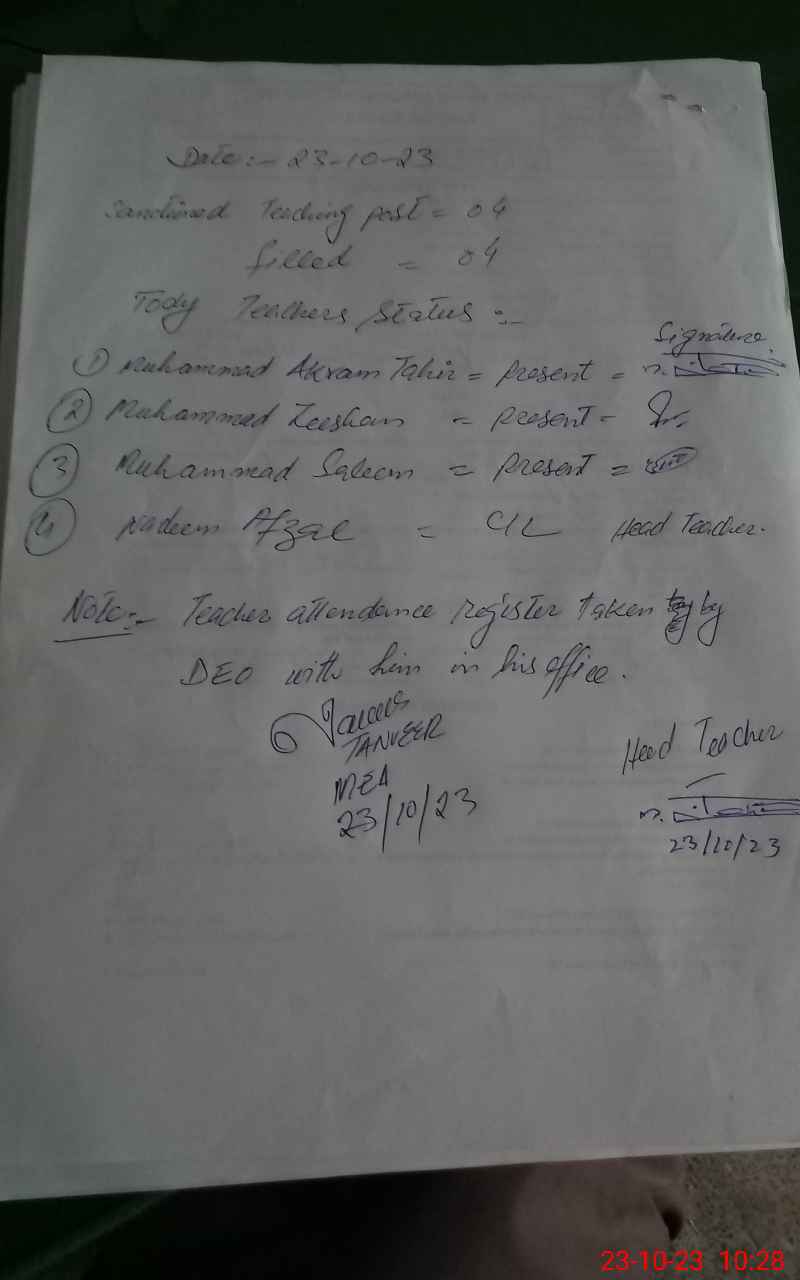 Date:- 23-10-23
Sanctioned Teaching post = 04
filled = 04
Tody Teachers Status :-
Signature
① Muhammad Akram Tahir = Present =
② Muhammad Zeeshan = present -
③ Muhammad Saleem = Present =
④ Nadeem Afzal = C/L Head Teacher.
Note:- Teacher attendance register taken by
DEO with him in his office.
TANVEER
MEA
23/10/23
Head Teacher
23/10/23
23-10-23 10:28